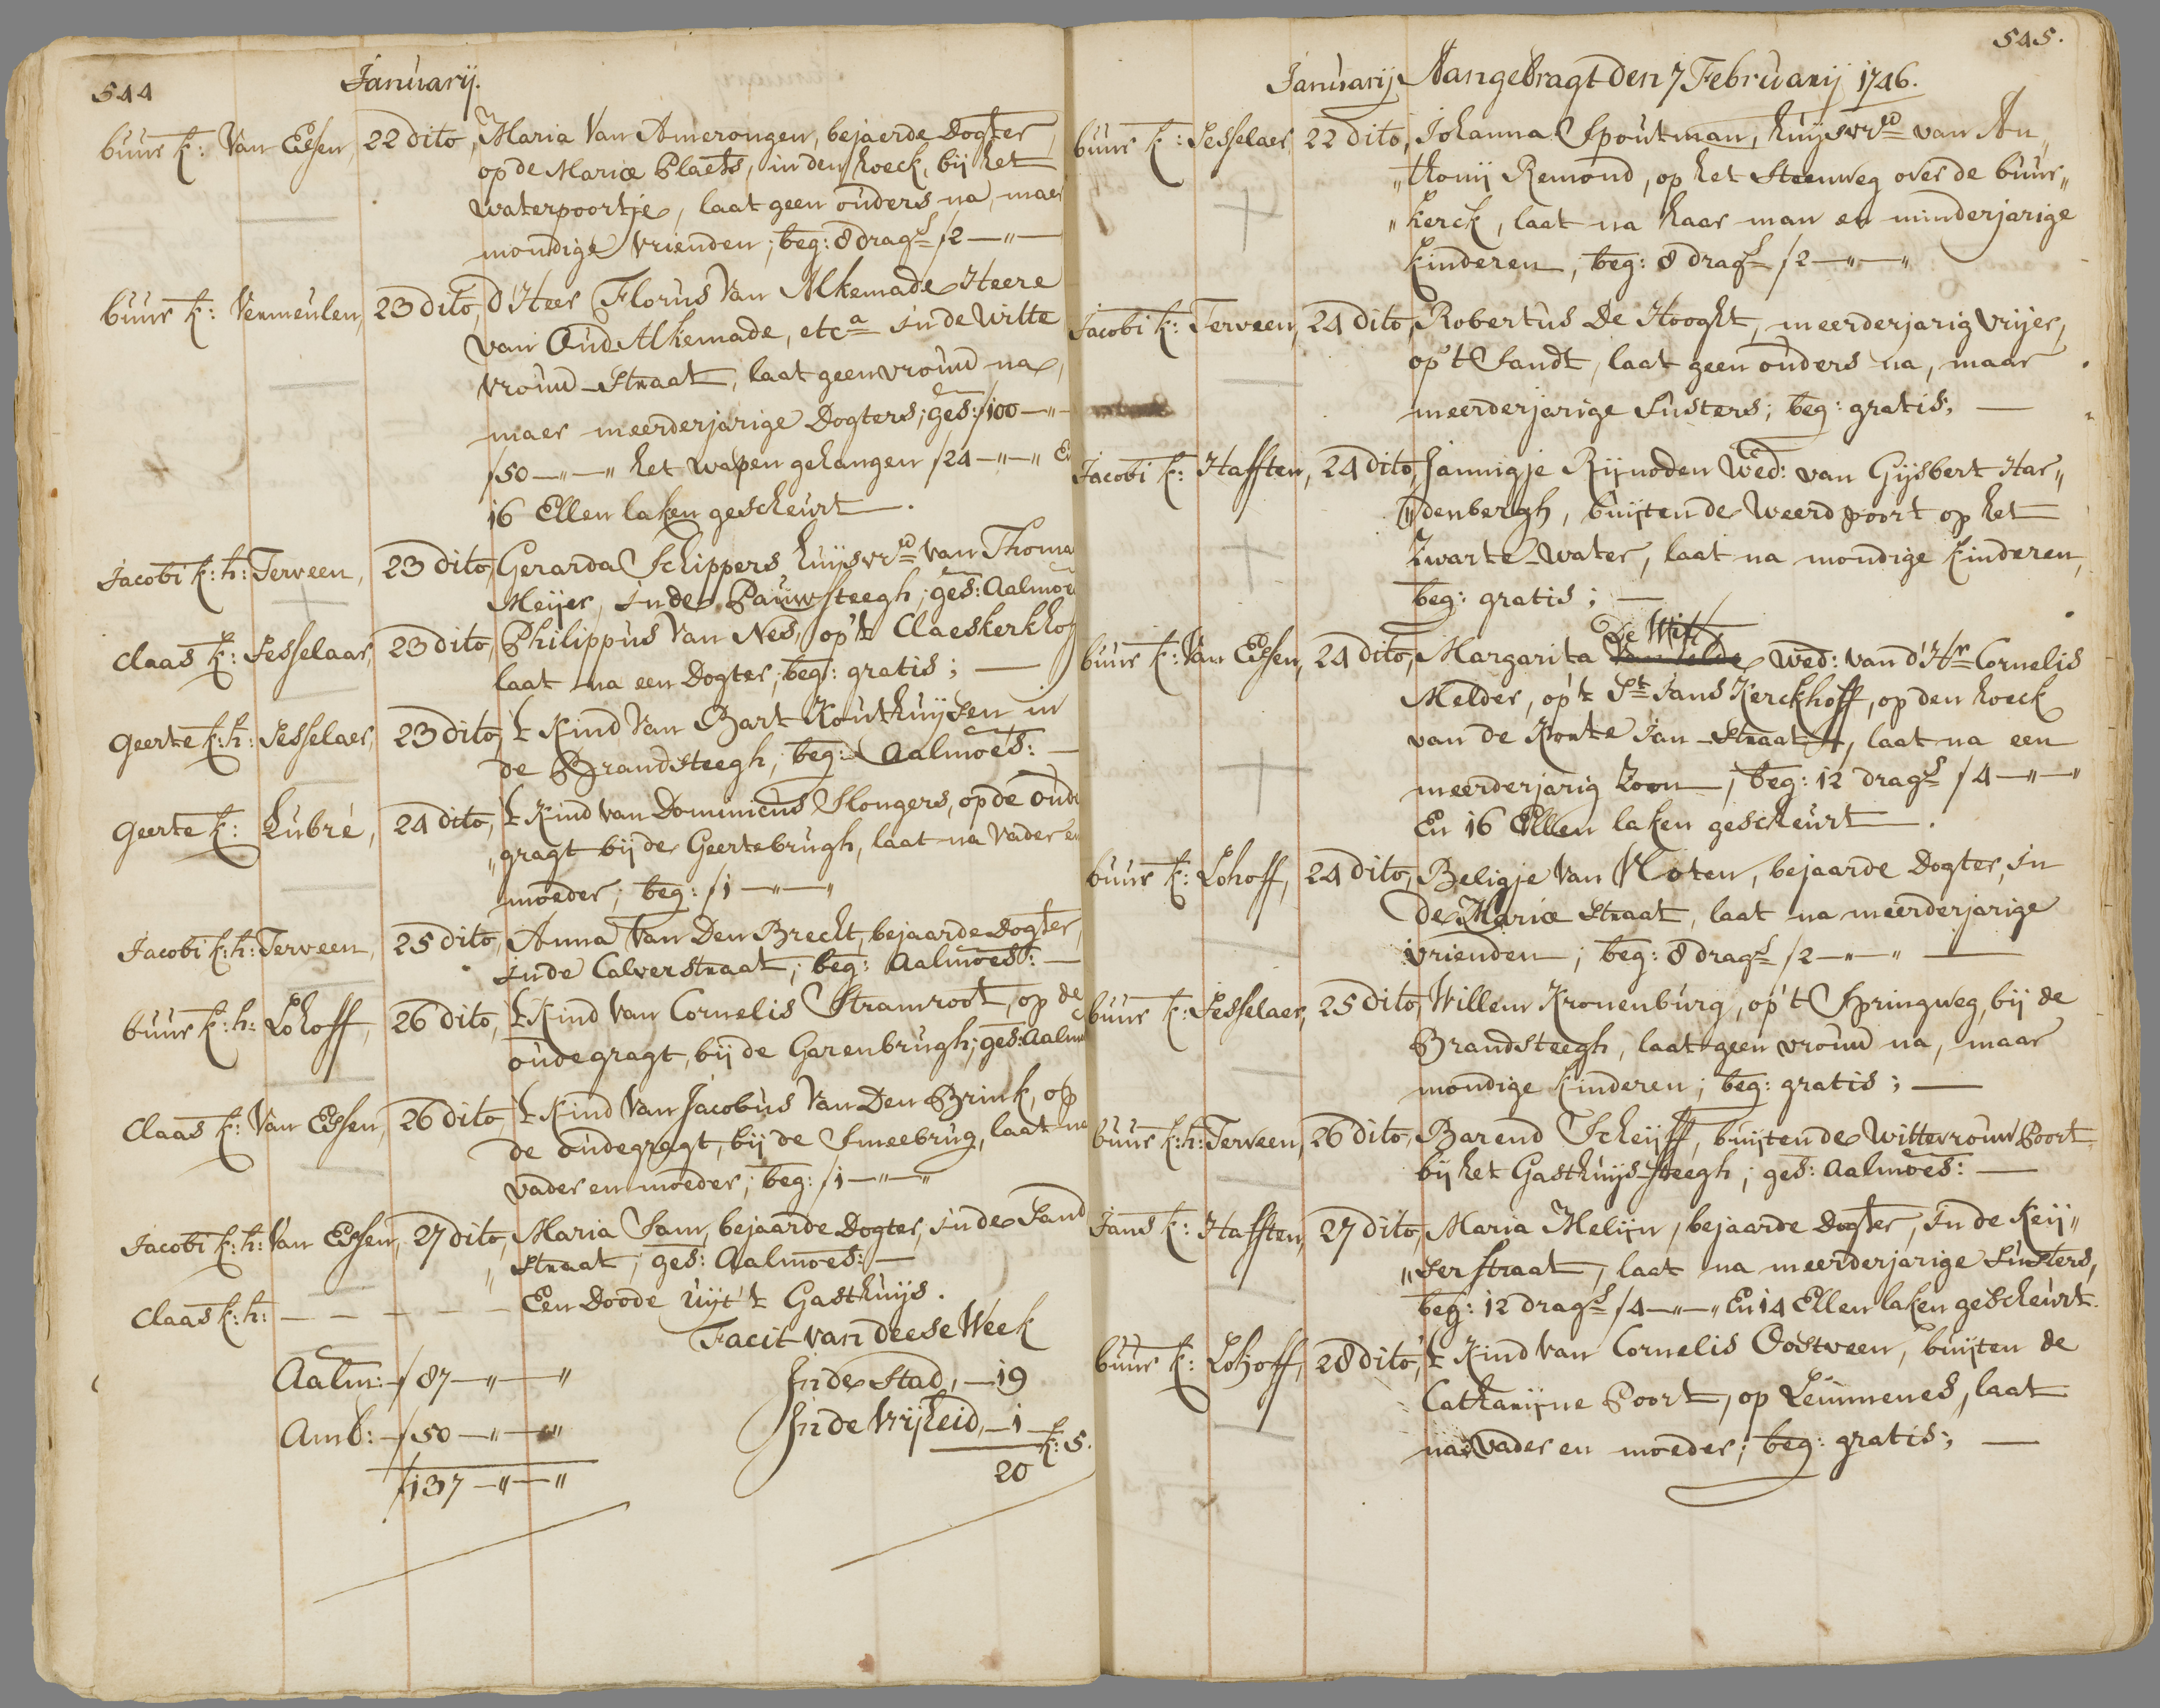 544
Januarij.
buur k: Van Essen, 22 dito, Maria Van Amerongen, bejaerde Dogter,
op de Mariæ Plaets, in den hoeck, bij het
waterpoortje, laat geen ouders na, maer
mondige vrienden; beg: 8 dragrs ƒ2—"—
buur k: Vermeulen, 23 dito, d'Heer Florus Van Alkemade Heere
van Oud Alkemade, etca in de Witte
vrouw-Straat, laat geen vrouw na,
maer meerderjarige Dogters; ges: ƒ100—"—
ƒ50—"—" het wapen gehangen ƒ24—"—" En
16 Ellen laken gescheurt.
Jacobi k: h: Terveen, 23 dito, Gerarda Schippers huijsvrw van Thoma
Meijer, in de Pauwsteegh; ges: Aalmoe
Claas k: Sesselaar, 23 dito, Philippus Van Nes, op't Claeskerkhof
laat na een Dogter; beg: gratis; —
Geerte k: h: Sesselaer, 23 dito, 't Kind Van Bart Kouthuijsen in
de Brandsteegh; beg: Aalmoes: —
Geerte k: Lubré, 24 dito, 't Kind van Dominicus Slongers, op de oude
"gragt bij de Geertebrugh, laat na Vader en
moeder; beg: ƒ1—"—"
Jacobi k: h: Terveen, 25 dito, Anna Van Den Brecht, bejaarde Dogter,
in de Calverstraat; beg: Aalmoes: —
buur k: h: Lohoff, 26 dito, 't Kind Van Cornelis Stramroot, op de
oudegragt, bij de Garenbrugh; ges: Aalm
Claas k: Van Essen, 26 dito 't Kind Van Jacobus Van Den Brink, op
de oudegragt, bij de Smeebrug, laat na
vader en moeder; beg: ƒ1—"—"
Jacobi k: h: Van Essen, 27 dito, Maria Sam, bejaarde Dogter, in de Sand
"straat; ges: Aalmoes: —
Claas k: h: — — — — — Een Doode uijt't Gasthuijs.
Facit van deese Week
Aalm: ƒ87—"—" In de Stad, —19
Amb: ƒ50—"—" In de Vrijheid, —1 k: 5.
ƒ137—"—" 20
545.
Januarij Aangebragt den 7 Februarij 1746.
buur k: Sesselaer, 22 dito, Johanna Spoutman, huijsvrw van An"
"thonij Remond, op het Steenweg over de buur"
"kerck, laat na haar man en minderjarige
Kinderen; beg: 8 dragrs ƒ2—"—"
Jacobi k: Terveen, 24 dito, Robertus De Hooght, meerderjarig vrijer,
op't Sandt, laat geen ouders na, maar
meerderjarige Susters; beg: gratis; —
Jacobi k: Hafften, 24 dito, Jannigje Rijnoden Wed: van Gijsbert Har"
"denbergh, buijten de Weerdpoort op het
Zwarte-Water, laat na mondige kinderen,
beg: gratis; —
De Wit
buur k: Van Essen, 24 dito, Margarita wed: van d'Hr Cornelis
Melder, op't St Jans Kerckhoff, op den hoeck
van de Korte Jan-Straat, laat na een
meerderjarig Zoon; beg: 12 dragrs ƒ4—"—"
En 16 Ellen laken gescheurt.
buur k: Lohoff, 24 dito, Beligje Van Vloten, bejaarde Dogter, in
de Mariæ Straat, laat na meerderjarige
vrienden; beg: 8 dragrs ƒ2—"—" —
buur k: Sesselaer, 25 dito, Willem Kronenburg, op't Springweg, bij de
Brandsteegh, laat geen vrouw na, maar
mondige kinderen; beg: gratis; —
buur k: h: Terveen, 26 dito, Barend Scheijff, buijten de Wittevrouw Poort
bij het Gasthuijs-Steegh; ges: Aalmoes: —
Jans k: Hafften, 27 dito, Maria Melijn, bejaarde Dogter, in de Keij"
"serstraat, laat na meerderjarige Susters,
beg: 12 dragrs ƒ4—"—" En 14 Ellen laken gescheurt.
buur k: Lohoff, 28 dito, 't Kind Van Cornelis Oostveen, buijten de
Catharijne Poort, op Leummenes, laat
na Vader en moeder; beg: gratis; —